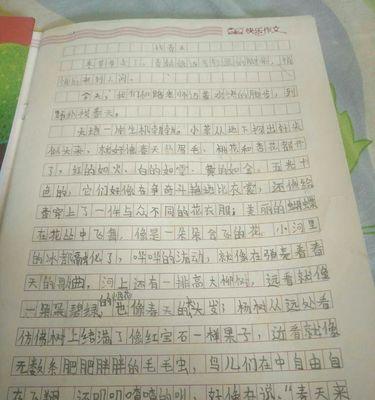 快乐作文
找春天
今天,我们和踏着的脚步,到
野外找春天。
大地一片生机勃勃。小草从地下探出
头来,就好像春天的眉毛。桃花和杏花都开
了,红的如火,白的如雪,黄的如金,五光十
色的,它们好像在争奇斗艳地比衣裳,还像给
春穿上了一件与众不同的花衣服;美丽的蝴蝶
在花丛中飞舞,像是一朵朵会飞的花。小河里
的冰都融化了,哗哗的流动,就像在弹奏着春
天的歌曲。河上还有一排高大柳树,远看就像
一朵朵碧绿的烟花,也像春天的头发;杨树从远处看
仿佛树上结满了像红宝石一样果子,近看就像
无数条肥肥胖胖的毛毛虫,鸟儿们在中自由自
在飞翔,还叽叽喳喳的叫,好像在说:“春天来